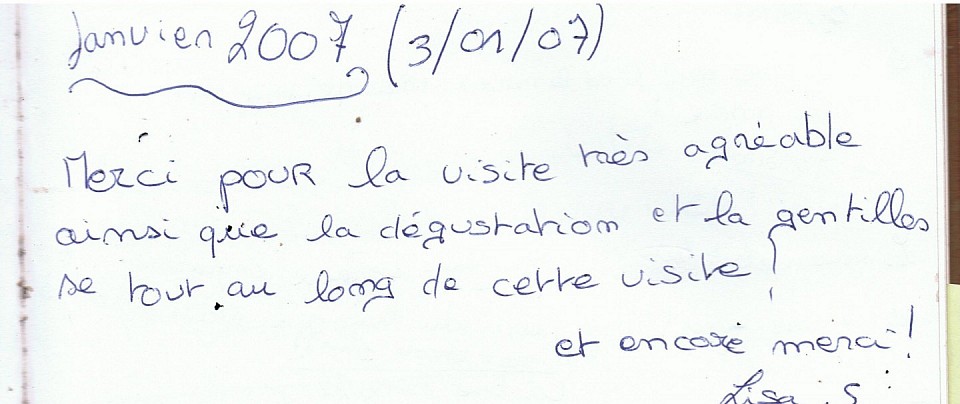 Janvier 2007 (3/01/07)
Merci pour la visite très agréable
ainsi que la dégustation et la gentilles
se tout au long de cette visite !
et encore merci !
Lisa . S